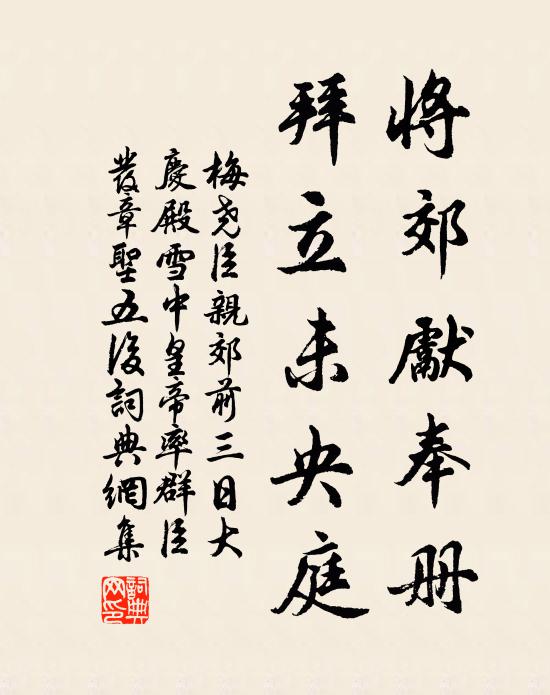 將郊獻奉册
拜立未央庭
梅堯臣親郊前三日大
慶殿雪中皇帝率群臣
發章聖五後詞典網集
詞典網印